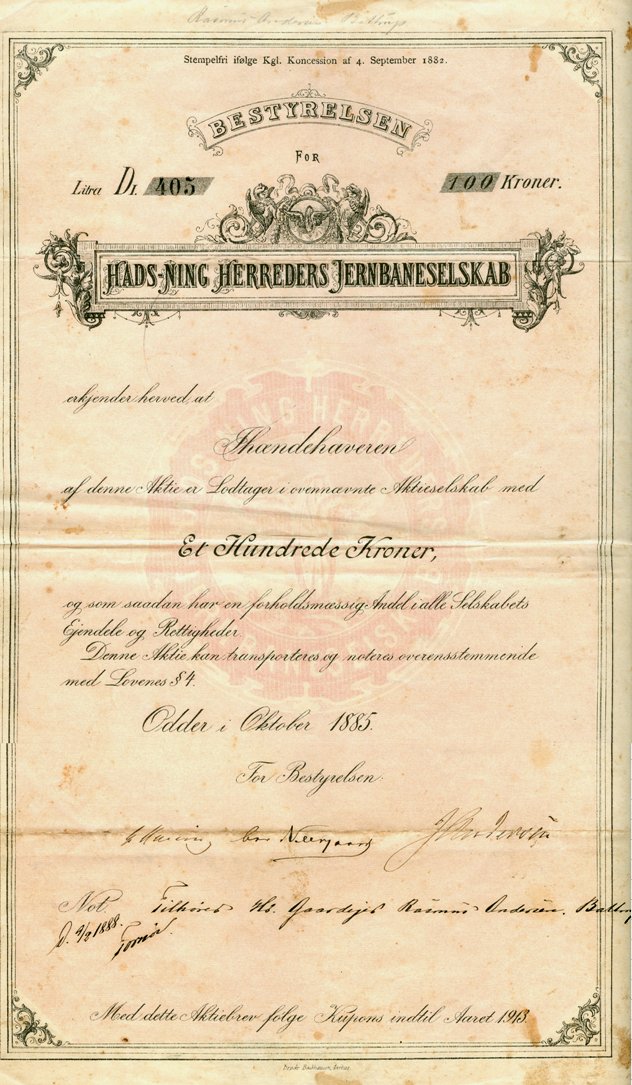 Rasmus Andersen Battrup
Stempelfri ifølge Kgl. Koncession af 4. September 1882.
BESTYRELSEN
FOR
Litra D1. 405 100 Kroner.
HADS-NING HERREDERS JERNBANESELSKAB
erkjender herved, at
Ihændehaveren
af denne Aktie er Lodtager i ovennævnte Aktieselskab med
Et Hundrede Kroner,
og som saadan har en forholdsmæssig Andel i alle Selskabets
Ejendele og Rettigheder.
Denne Aktie kan transporteres og noteres overensstemmende
med Lovenes § 4.
Odder i Oktober 1885.
For Bestyrelsen:
Neergaard J Andersen
Not. Tilhører Hr. Gaardejer Rasmus Andersen, Battrup
D. 2/2 1888.
Med dette Aktiebrev følge Kupons indtil Aaret 1913.